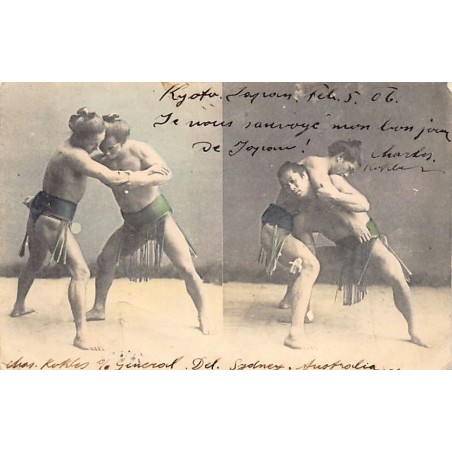 Kyoto. Japan, Feb. 5. 06.
Je vous envoyé mon bon jour
de Japan!
Charles.
Chas. Kokles c/o General. Del. Sydney, Australia